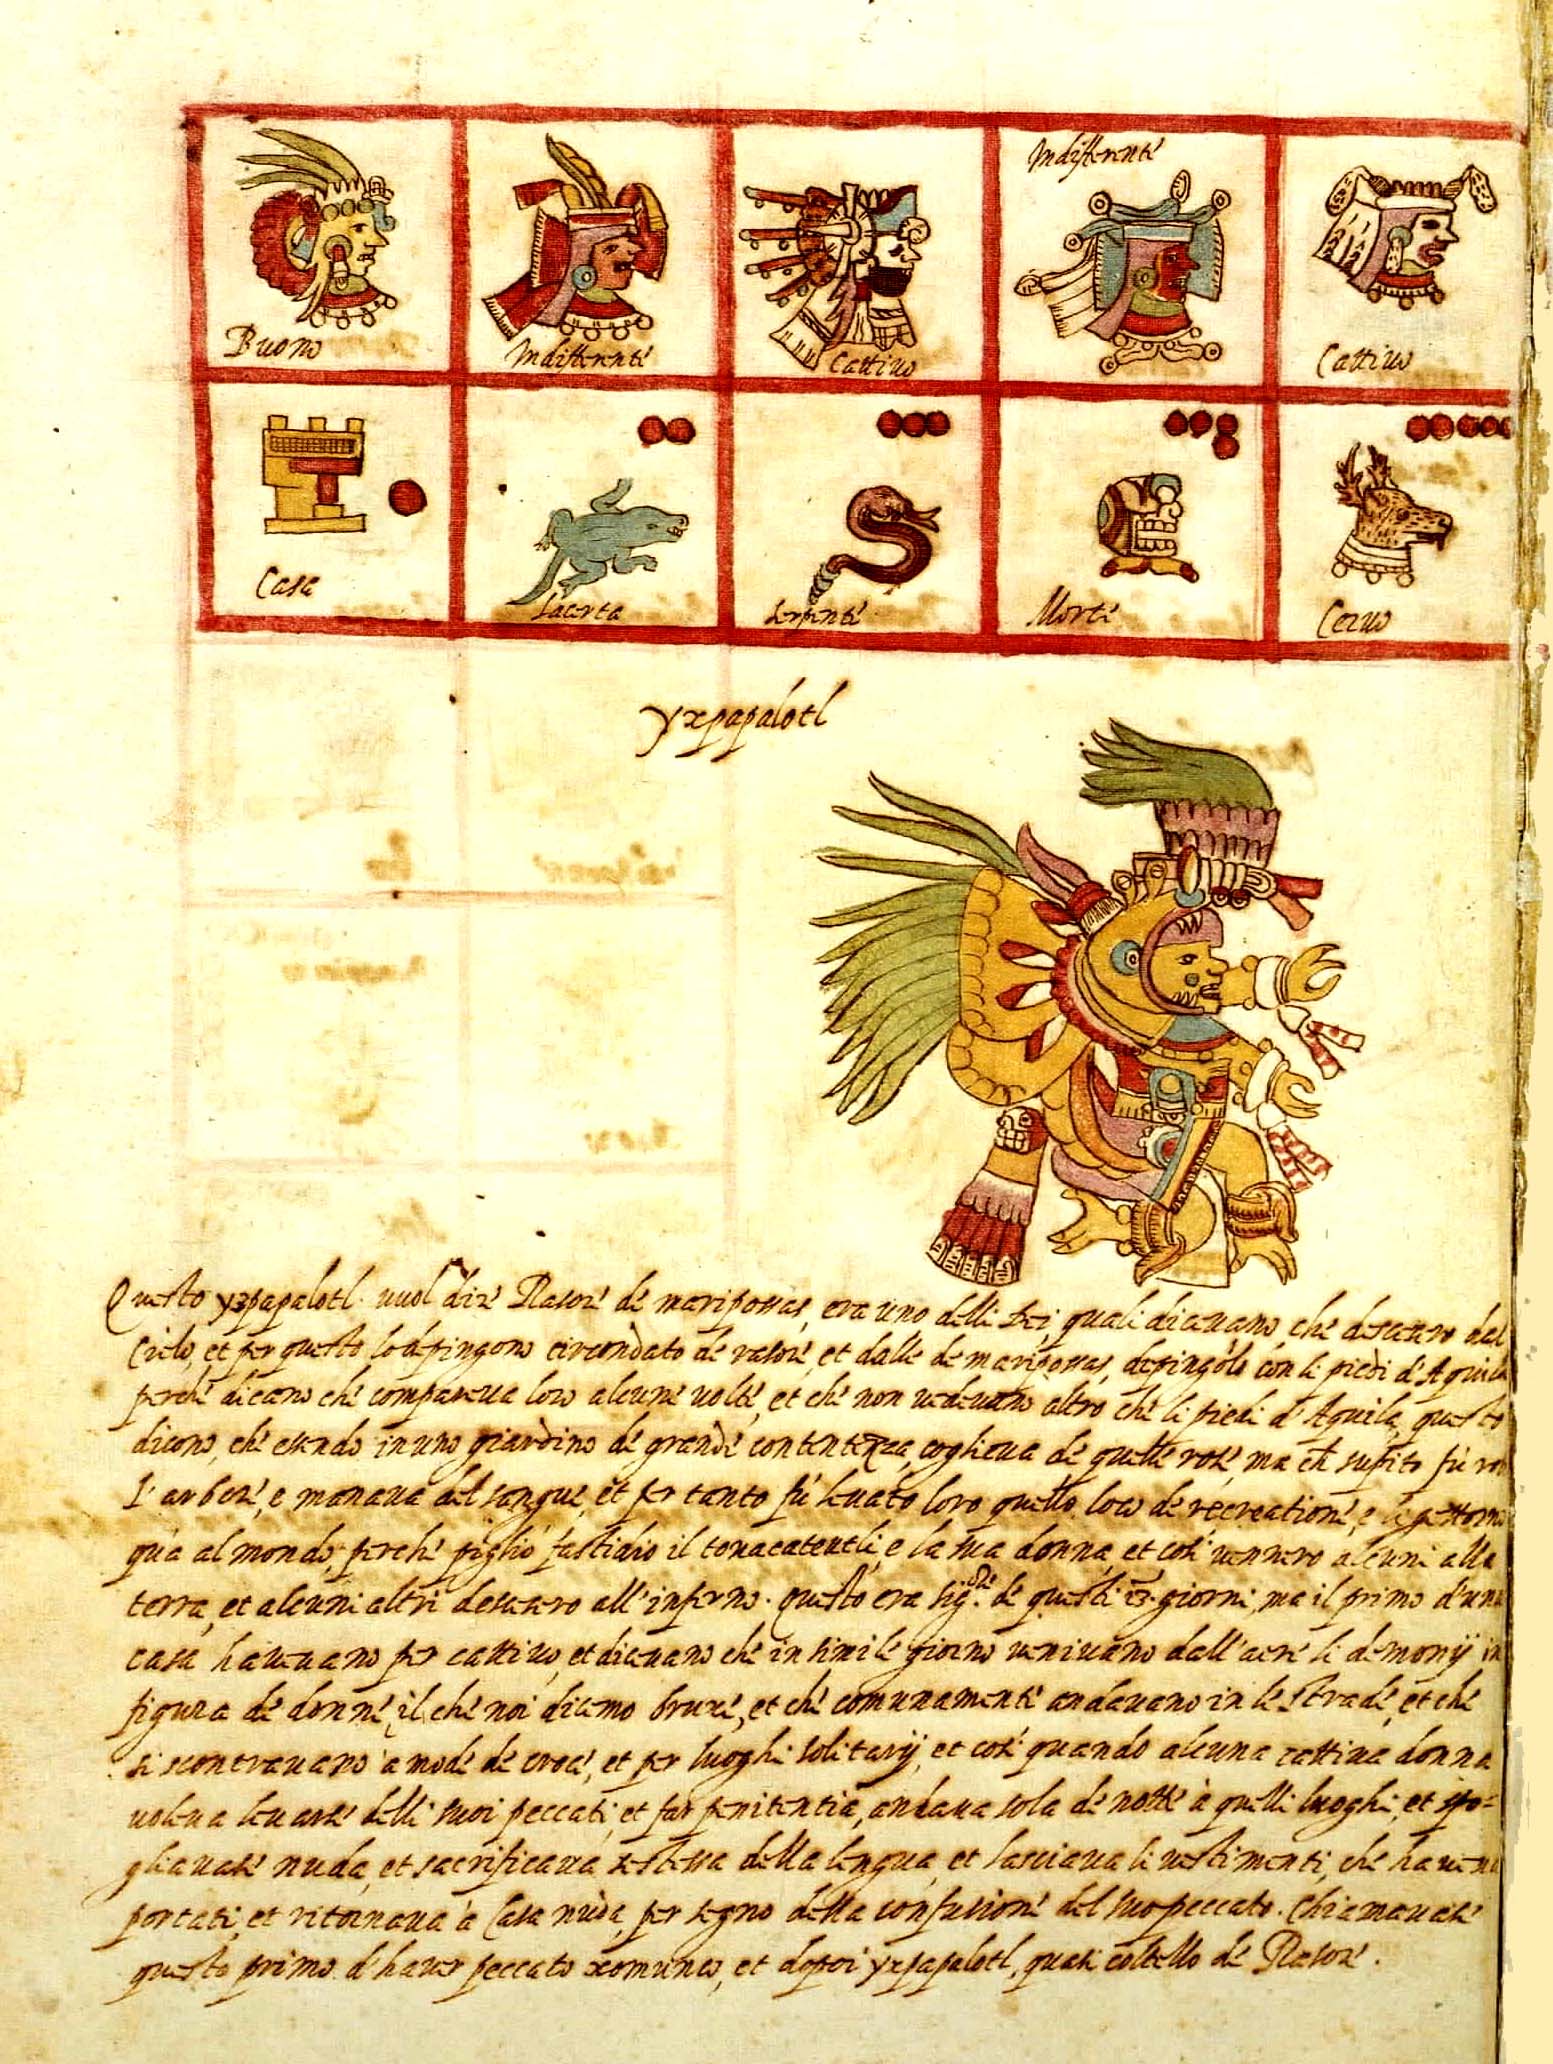 Indifferente
Buono
Indifferente
Cattivo
Cattivo
Casa
Lacerta
Serpente
Morte
Cervo
yxpapalotl
Questo yzpapalotl vuol dire Rasore de mariposas, era uno delli Dei, quali dicavano, che descaero dal
Cielo, et per questo lo depingono circondato de rasore, et d'alle de mariposas, depingolo con li piedi d'Aquila
perche dicano che compareva loro alcune volte, et che non vedevano altro che li piedi d'Aquila, questo
dicono, che essendo in uno giardino de grande contentezza, coglieva de quelle rose, ma ch subito fu
l'arbore, e manava del sangue, et per tanto fu levato loro quello loco de recreatione, e li
qua al mondo, perche pigliò fastidio il tonacateutli, e la sua donna, et cosi vennero alcuni alla
terra, et alcuni altri al'inferno. Questo era sig.re de questi 13. giorni, ma il primo d'una
casa havevano per cattivo, et dicavano che in simile giorno venivano dall'aere li demonij in
figura de donne, il che noi dicemo bruxe, et che comunamente andavano in le strade, et che
si scontravano a mode de croce, et per luoghi solitarij, et cosi quando alcuna cattiva donna
voleva levarse delli suoi peccati, et far penitentia, andava sola de notte à quelli luoghi, et spo-
gliavase nuda, et sacrificava se stessa della lengua, et lasciava li vestimenti, che haveva
portati, et ritornava à casa nuda, per segno della confusione del suo peccato. Chiamavase
questo primo d'haver peccato xomunco, et dopoi yxpapalotl, quasi coltello de Rasore.